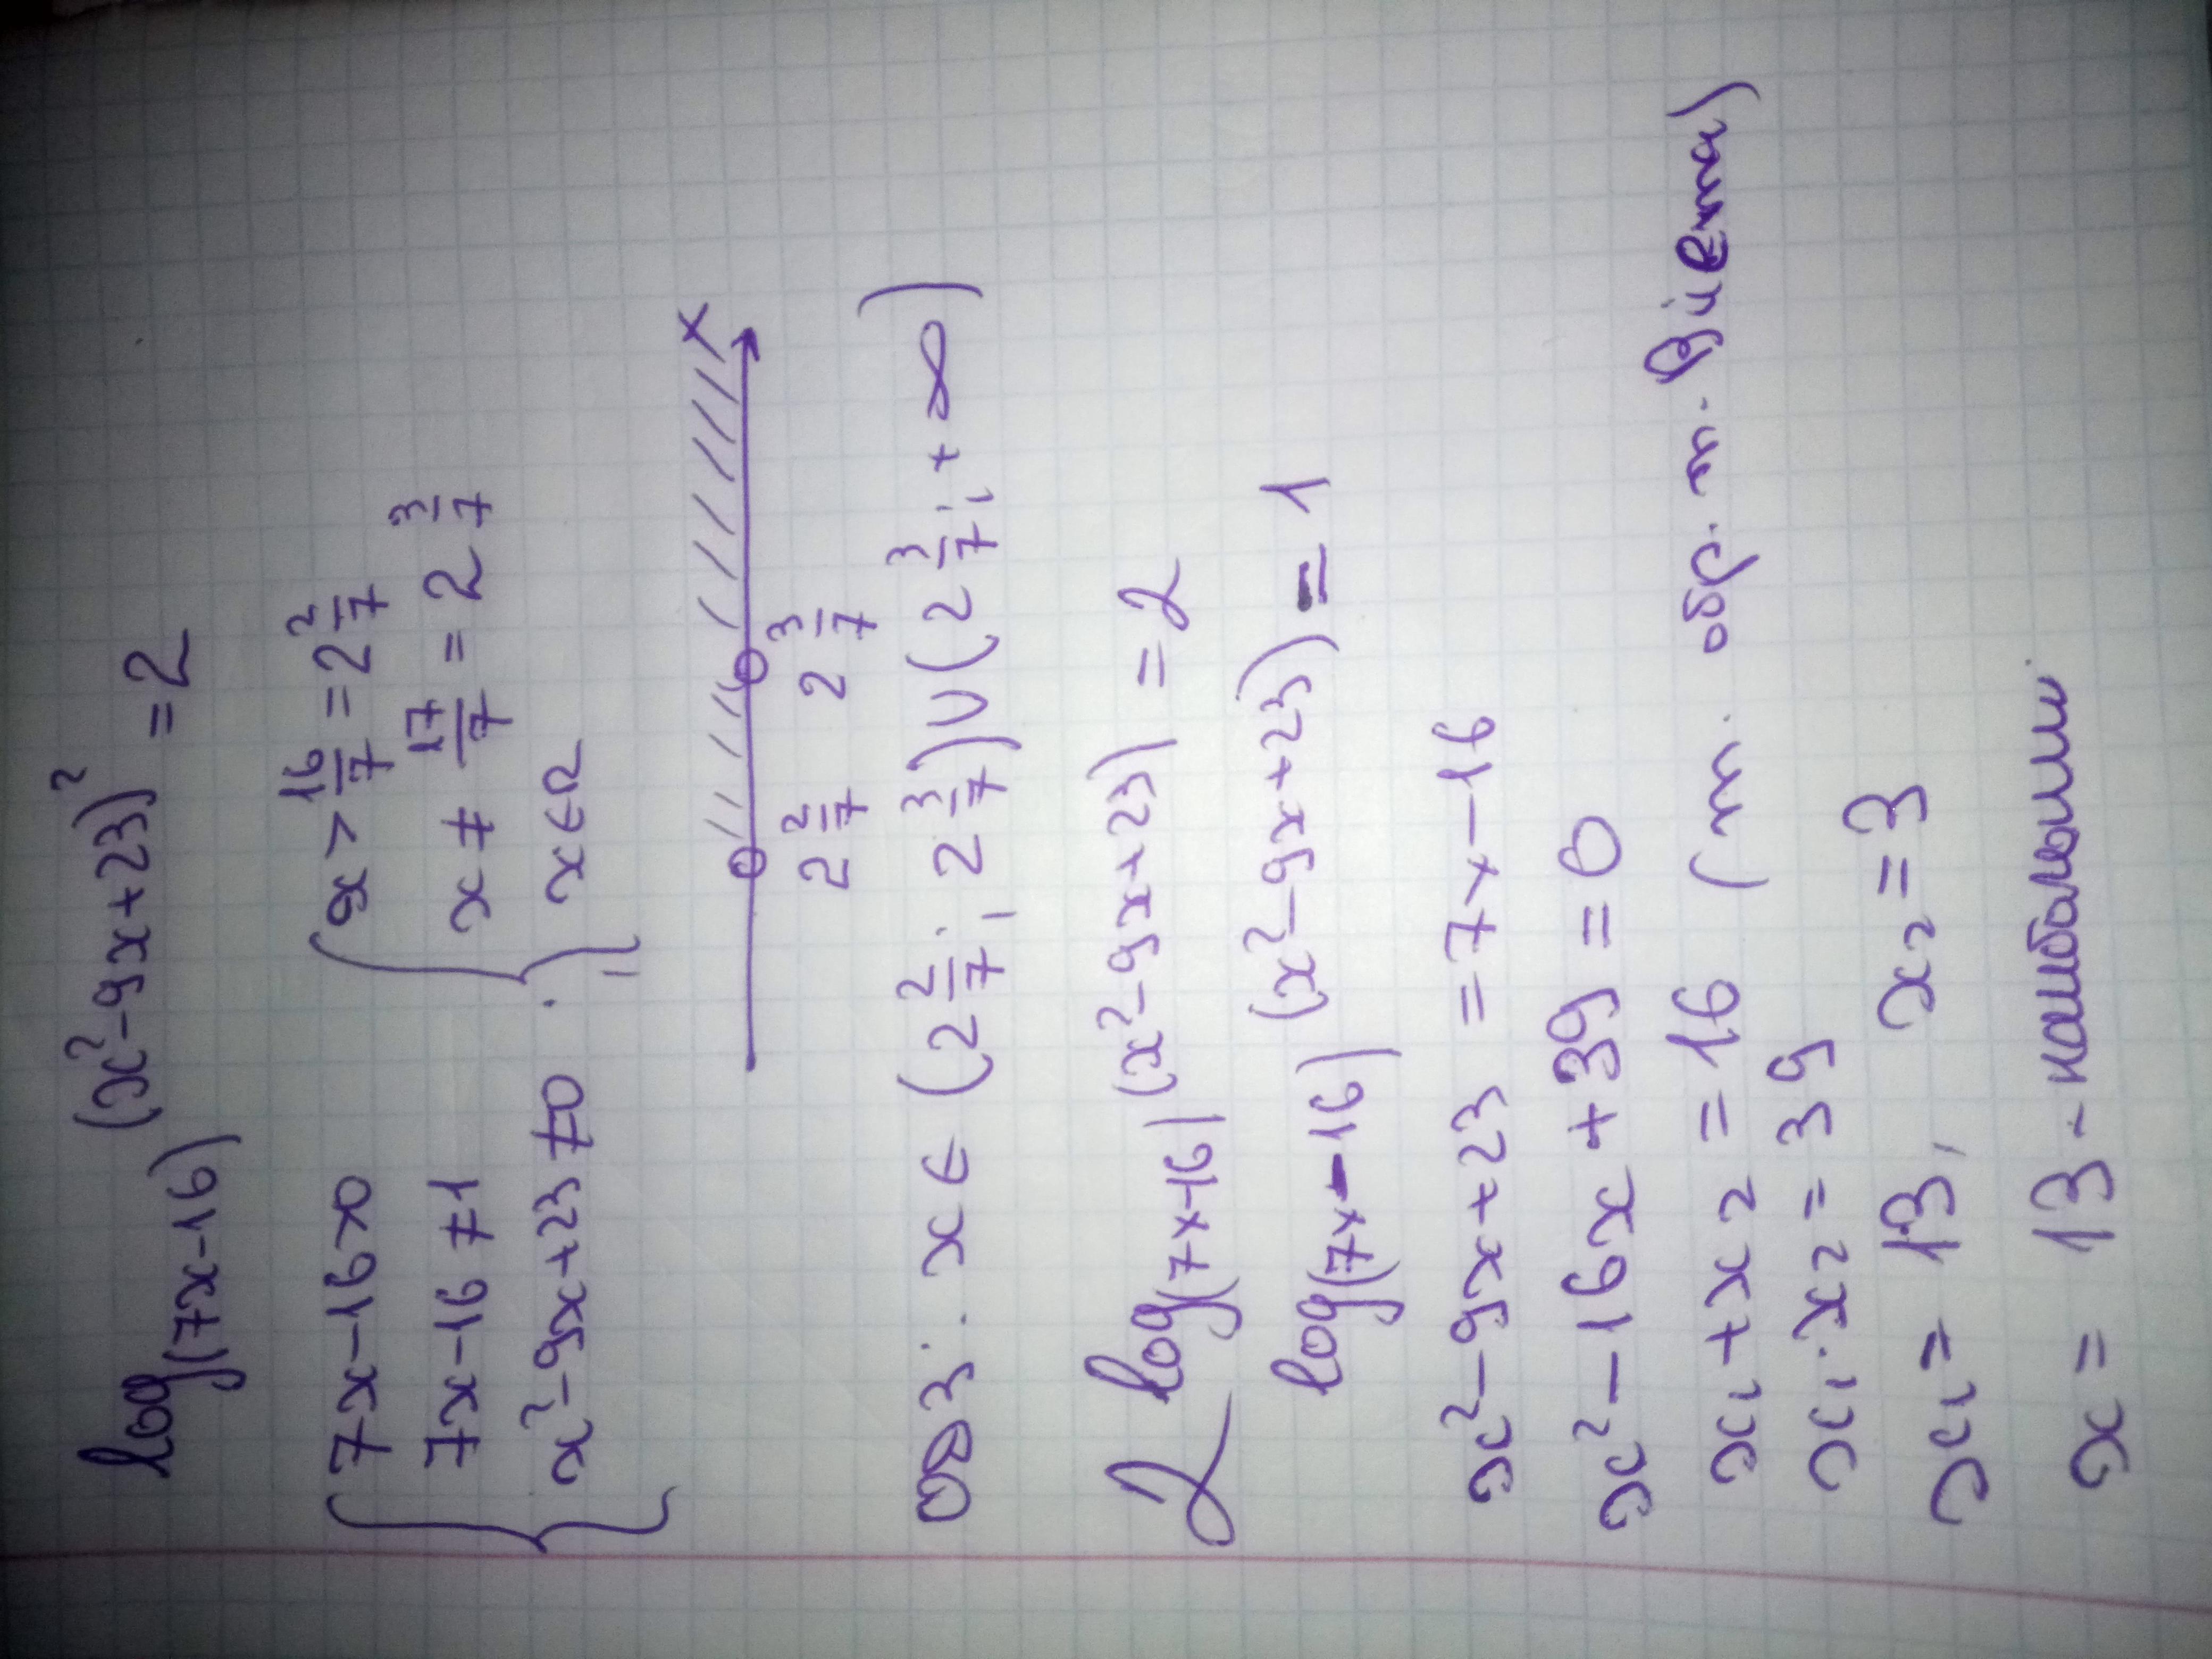 log(7x-16) (x²-9x+23)² = 2
{ 7x-16>0 { x > 16/7 = 2 2/7
7x-16 ≠ 1 x ≠ 17/7 = 2 3/7
x²-9x+23 ≠ 0 ; x ∈ R
x
2 2/7 2 3/7
ОДЗ: x ∈ (2 2/7; 2 3/7) ∪ (2 3/7; +∞)
2 log(7x-16) (x²-9x+23) = 2
log(7x-16) (x²-9x+23) = 1
x²-9x+23 = 7x-16
x²-16x+39=0
x₁+x₂=16 (т. обр. т. Виета)
x₁·x₂=39
x₁=13, x₂=3
x = 13 - наибольший